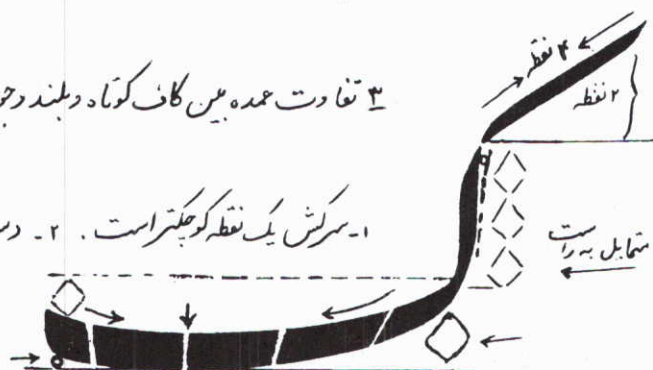 ۴ نقطه
۲ نقطه
۳ تفاوت عمده بین کاف کوتاه و بلند وجو
۱- سرکش یک نقطه کوچکتر است . ۲- دس
متمایل به راست